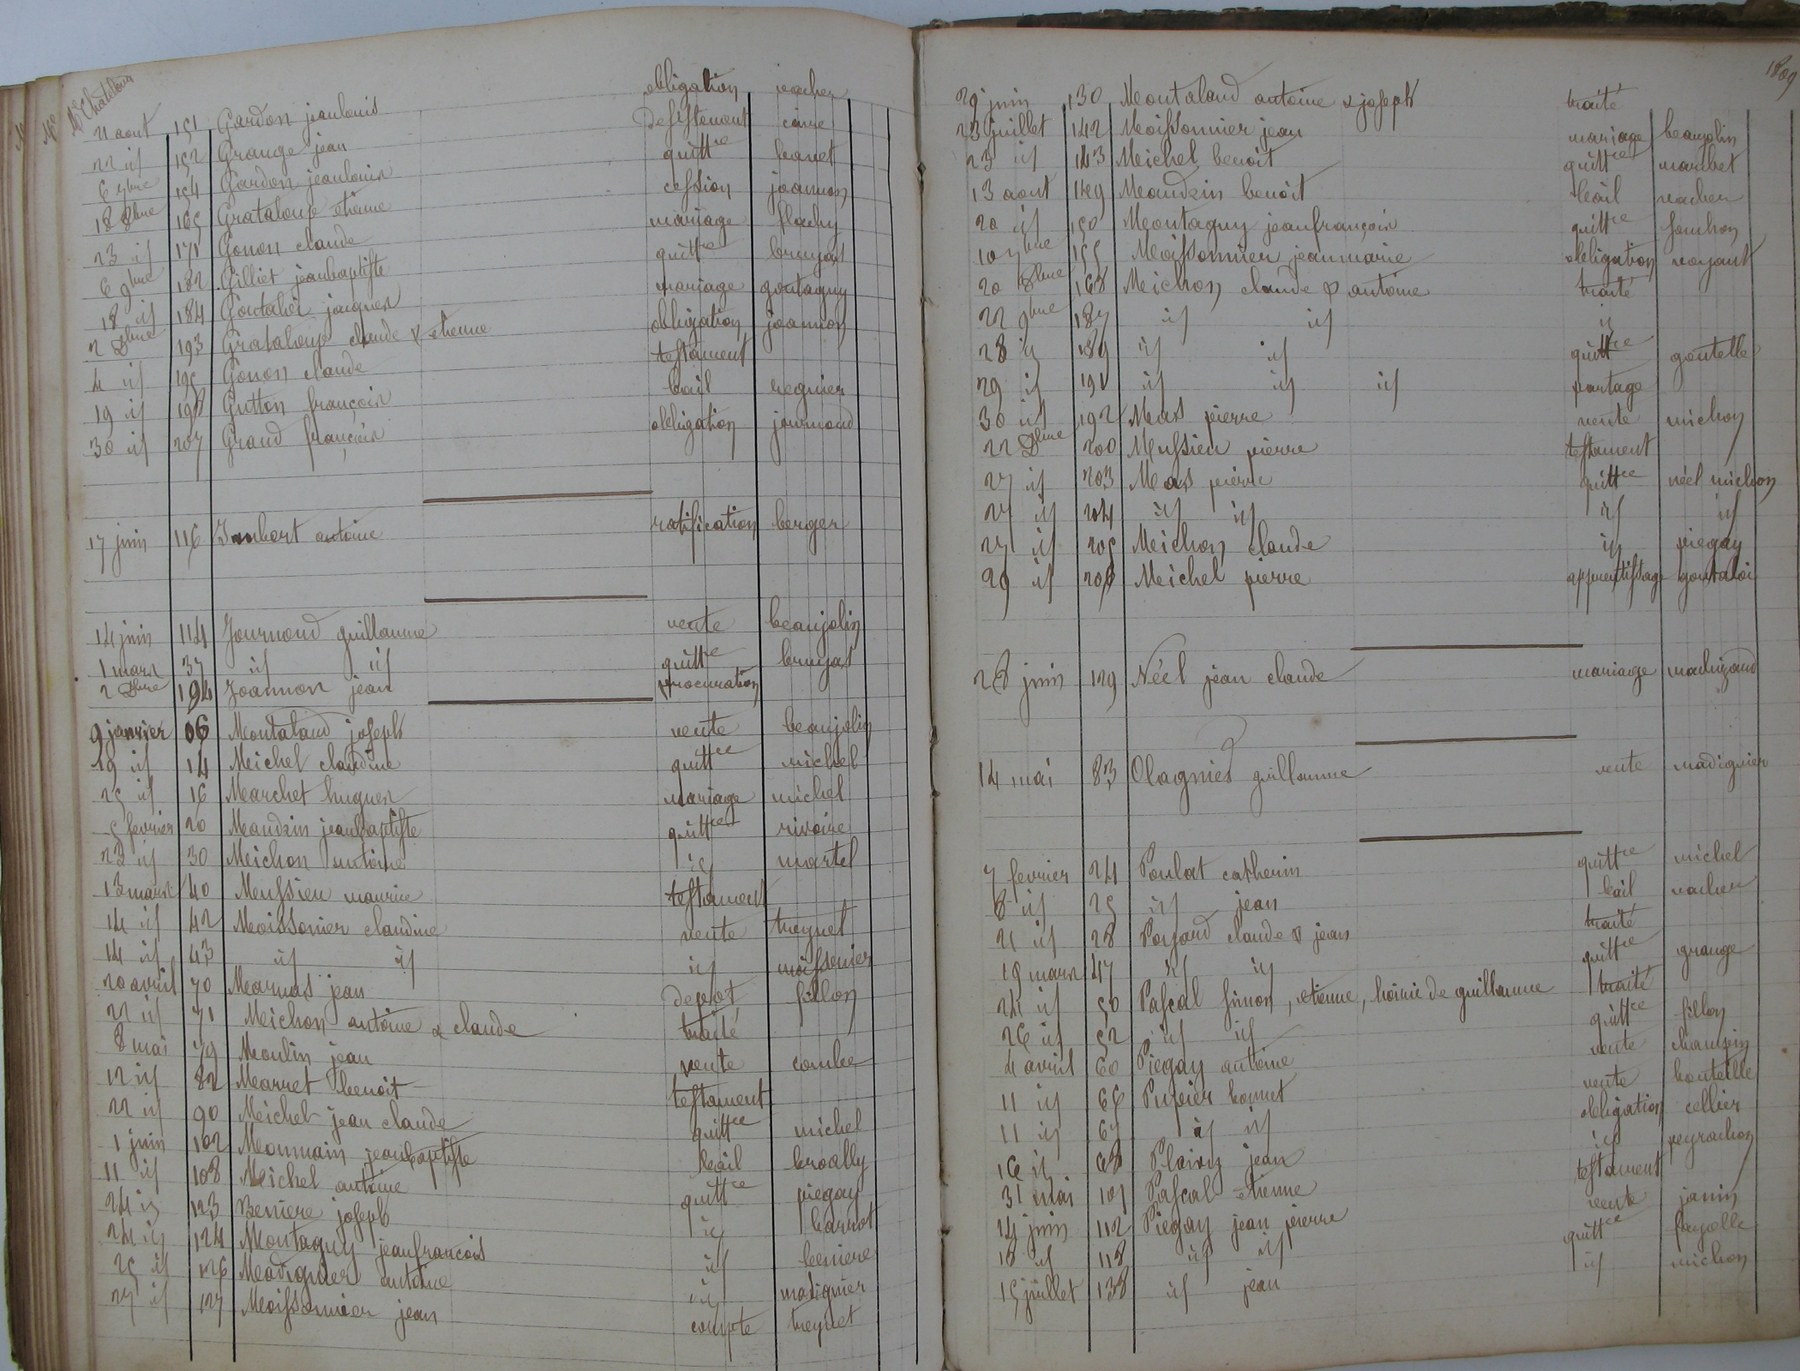 Me Chatelus
21 aout 151 Gardon jeanlouis obligation vacher
22 id 152 Grange jean Desistement
6 7bre 154 Gardon jeanlouis quittce
18 8bre 165 Grataloup etienne cession joannon
23 id 171 Gonon claude mariage flachy
6 9bre 182 Gilliet jeanbaptiste quittce bruyas
18 id 184 Goutalier jacques mariage goutagny
2 Dbre 193 Grataloup claude & etienne obligation joannon
4 id 195 Gonon claude testament
19 id 198 Gutton francois bail regnier
30 id 207 Grand françois obligation journoud
17 juin 116 Imbert antoine ratification berger
14 juin 114 Journoud guillaume vente beaujolin
1 mars 37 id id quittce bruyas
2 Dbre 194 Joannon jean procuration
9 janvier 06 Montaland joseph vente beaujolin
19 id 14 Meichel claudine quittce michel
25 id 16 Marchet hugues mariage michel
5 fevrier 20 Maudzin jeanbaptiste quittce rivoire
23 id 30 Meichon antoine id martel
13 mars 40 Mussieu maurice testament
14 id 42 Moissonier claudine vente treynet
14 id 43 id id id moissonier
20 avril 70 Marnas jean depot fillon
22 id 71 Meichon antoine & claude traité
8 mai 79 Moulin jean vente combe
12 id 82 Marret benoit testament
22 id 90 Meichel jean claude quittce michel
1 juin 102 Monmain jeanbaptiste bail broally
11 id 108 Meichel antoine quittce piegay
24 id 123 Beniere joseph id barrot
24 id 124 Montagny jeanfrancois id beniere
25 id 126 Madignier antoine id madignier
27 id 127 Moissonnier jean compte treynet
1809
29 juin 130 Montaland antoine & joseph traité
23 juillet 142 Moissonnier jean mariage beaujolin
23 id 143 Meichel benoit quittce
13 aout 149 Maudzin benoit bail vacher
20 id 150 Montagny jeanfrançois quittce
10 7bre 155 Moissonnier jeanmarie obligation
20 8bre 168 Meichon claude & antoine traité
22 9bre 187 id id id
28 id 189 id id quittce goutelle
29 id 191 id id id partage
30 id 192 Mas pierre vente michon
22 Dbre 200 Mussieu pierre testament
27 id 203 Mas pierre quittce néel michon
27 id 204 id id id id
27 id 205 Meichon claude id piegay
29 id 206 Meichel pierre apprentissage
28 juin 129 Néel jean claude mariage madizand
14 mai 83 Olagnier guillaume vente madignier
7 fevrier 24 Poulat catherin quittce michel
8 id 25 id jean bail vacher
21 id 28 Poyard claude & jean traité
19 mars 47 id id quittce grange
24 id 50 Pascal simon, etienne, hoirie de guillaume traité
26 id 52 id id quittce fillon
4 avril 60 Piegay antoine vente
11 id 66 Pupier bonnet vente bouteille
11 id 67 id id obligation cellier
16 id 68 jean id peyrachon
31 mai 101 Pascal etienne testament
14 juin 112 Piegay jean pierre vente janin
18 id 118 id id quittce fayolle
15 juillet 138 id jean id michon